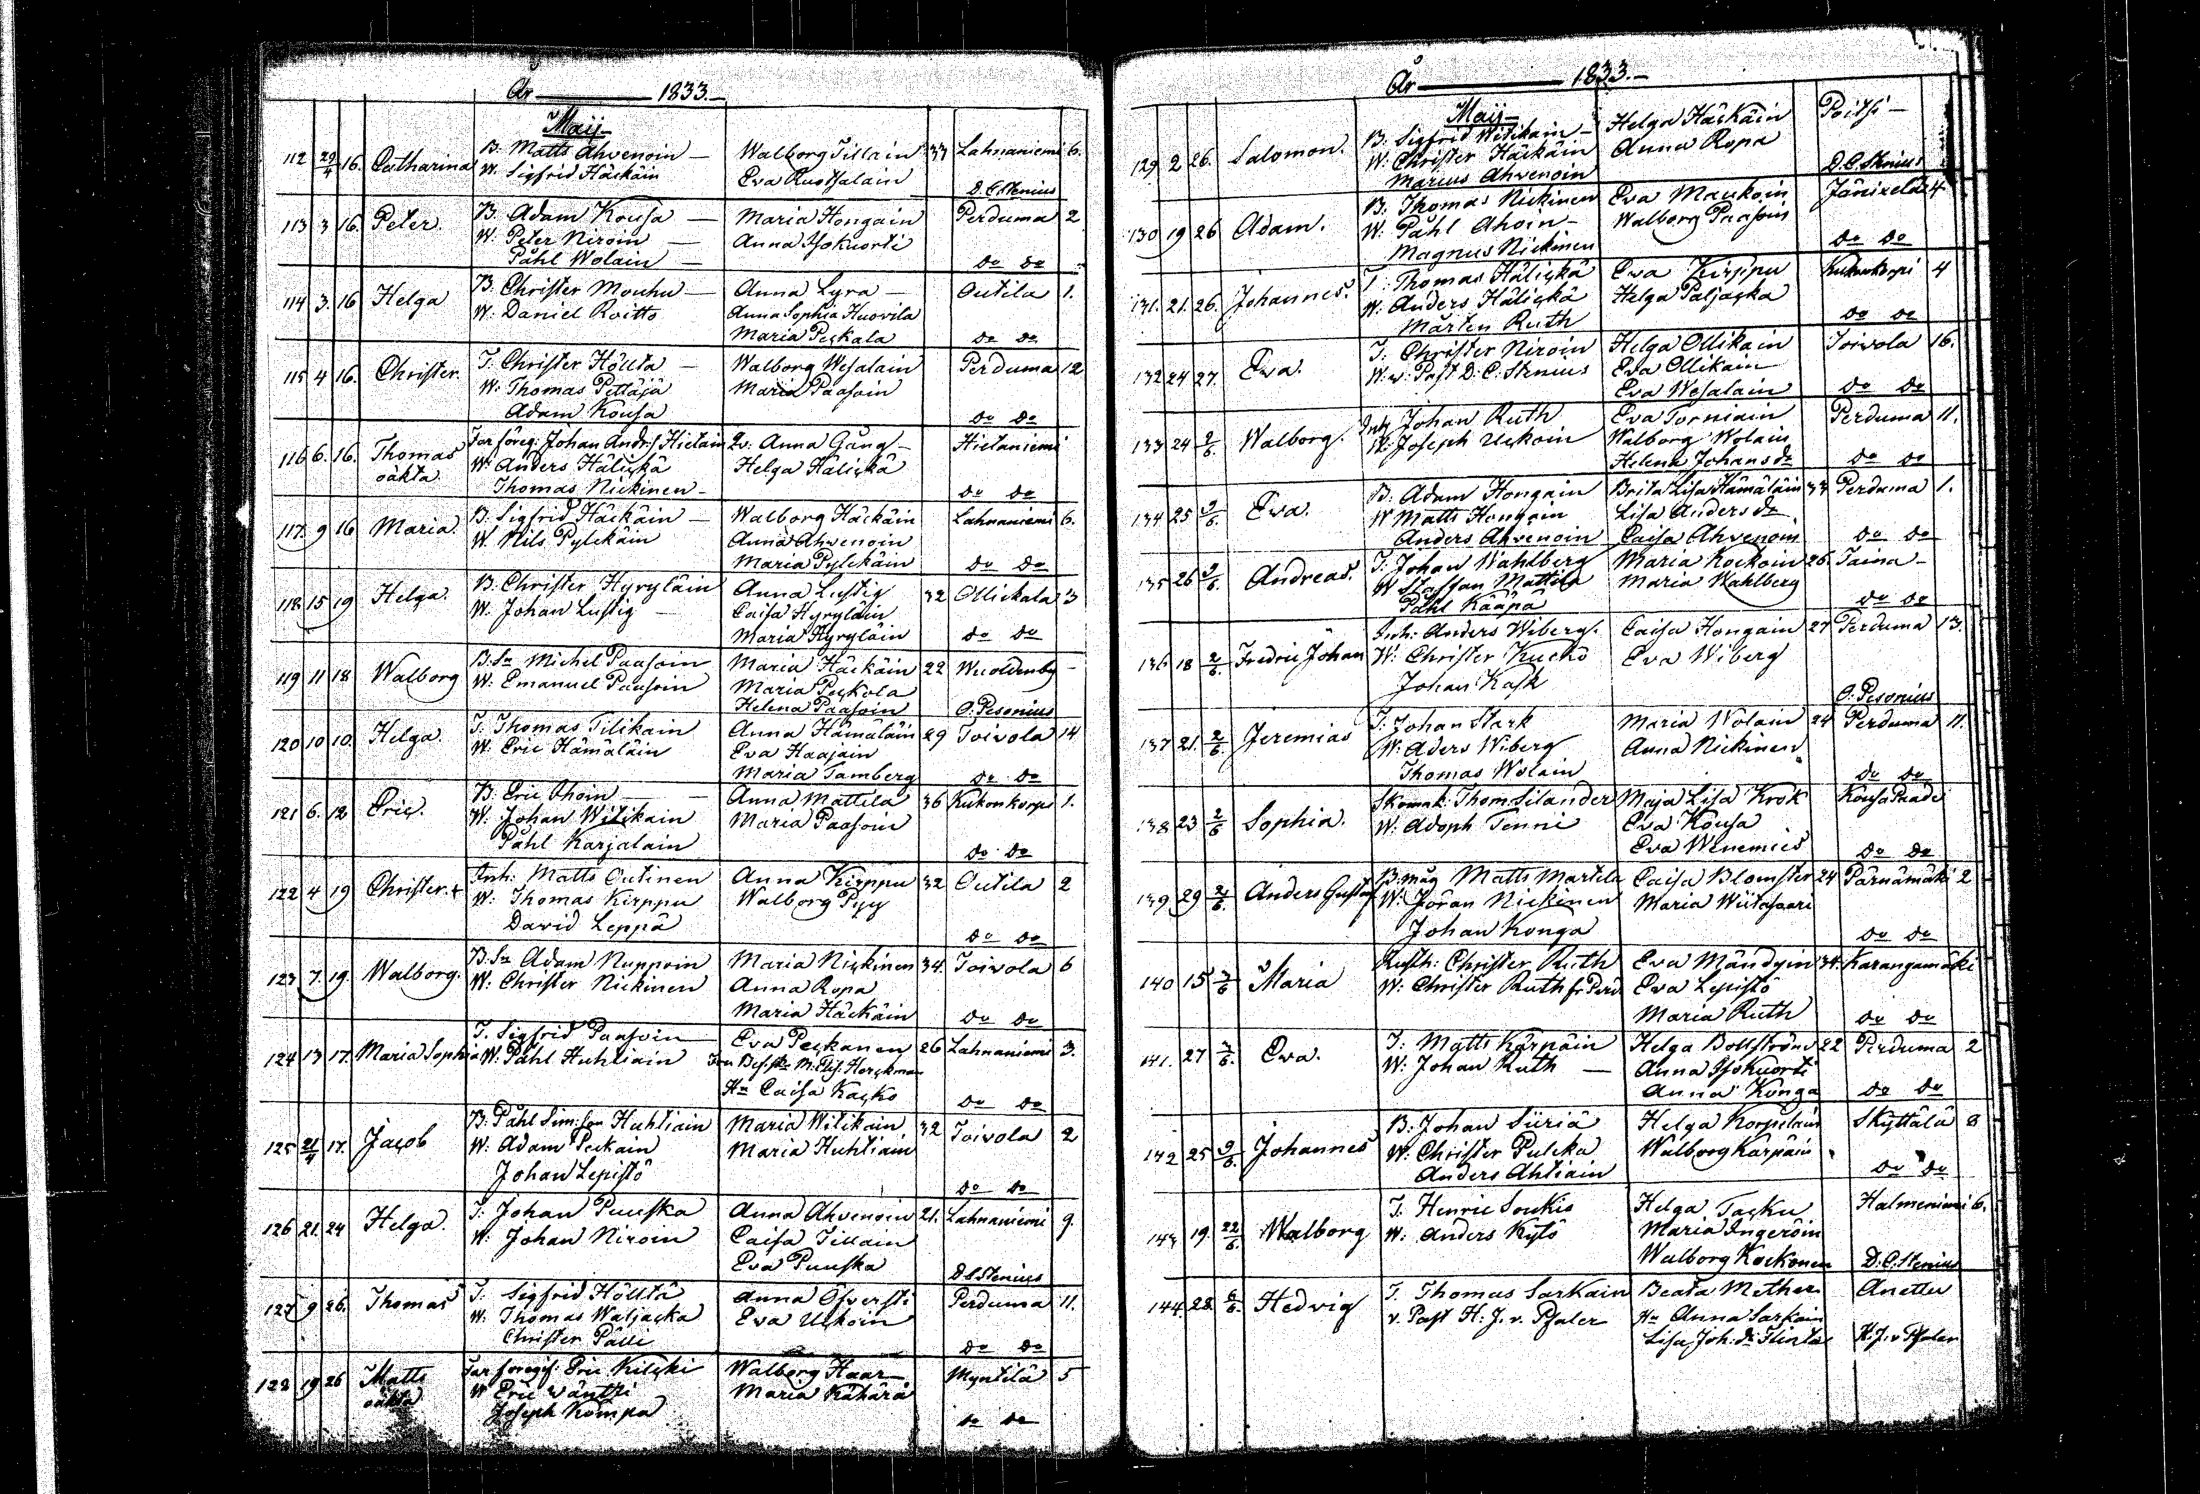 År 1833.
Maij
112 29/4 16. Catharina B. Matts Ahvenoin Walborg Tillain 33 Lahnaniemi 6.
W. Sigfrid Häckäin Eva Ruotsalain D. C. Stenius
113 3 16. Peter. B. Adam Kousa Maria Hongain Perduma 2
W. Peter Niroin Anna Isokuorti
Påhl Wolain Do Do
114 3. 16 Helga B. Christer Mouhu Anna Lyra Outila 1.
W. Daniel Roitto Anna Sophia Huovila
Maria Peckala Do Do
115 4 16. Christer. T. Christer Hölltä Walborg Wesalain Perduma 12
W. Thomas Pettäjä Maria Paasoin
Adam Kousa Do Do
116 6. 16. Thomas Far föreg: Johan Andr:s Hietain Qv. Anna Gång Hietaniemi
oäkta W. Anders Hälickä Helga Hälickä
Thomas Nickinen Do Do
117. 9 16 Maria. B. Sigfrid Häckäin Walborg Häckäin Lahnaniemi 6.
W. Nils Pylckäin Anna Ahvenoin
Maria Pylckäin Do Do
118 15 19 Helga. B. Christer Hyryläin Anna Lustig 32 Ollickala 3
W. Johan Lustig Caisa Hyryläin
Maria Hyryläin Do Do
119 11 18 Walborg B. Sn Michel Paasoin Maria Häckäin 22
W. Emanuel Paasoin Maria Peckola
Helena Paasoin O. Pesonius
120 10 10. Helga. T. Thomas Tilikain Anna Hämäläin 29 Toivola 14
W. Eric Hämäläin Eva Haajain
Maria Tamberg Do Do
121 6. 12 Eric. B. Eric Ahoin Anna Mattila 36 Kukonkorpi 1.
W. Johan Witikain Maria Paasoin
Påhl Karjalain Do Do
122 4 19 Christer. + Inh: Matts Outinen Anna Kirppu 32 Outila 2
W. Thomas Kirppu Walborg Pyy
David Leppä Do Do
123 7. 19. Walborg. B. Sn Adam Nuppoin Maria Nickinen 34. Toivola 6
W. Christer Nickinen Anna Ropa
Maria Häckäin Do Do
124 13 17. Maria Sophia T. Sigfrid Paasoin Eva Peckanen 26 Lahnaniemi 3.
W. Påhl Huhtiain
Caisa Kacko Do Do
125 21/4 17. Jacob B. Påhl Sim:son Huhtiain Maria Witikain 32 Toivola 2
W. Adam Peckain Maria Huhtiain
Johan Lepistö Do Do
126 21. 24 Helga. T. Johan Puuska Anna Ahvenoin 21. Lahnaniemi 9.
W. Johan Niroin Caisa Tillain
Eva Puuska D C Stenius
127 9 26. Thomas T. Sigfrid Hölltä Anna Öfversti Perduma 11.
W. Thomas Waljacka Eva Uckoin
Christer Pälli Do Do
128 19 26 Matts Far foregif: Eric Kilcki Walborg Haar Myntilä 5
oäkta W Eric Wäntzi Maria Kähärä
Joseph Kömpä Do Do
År 1833.
Maij
129. 2 26. Salomon. B. Sigfrid Witikain Helga Häckäin Poitsi
W. Christer Häckäin Anna Ropa
Marcus Ahvenoin D. C. Stenius
130 19 26 Adam. B. Thomas Nickinen Eva Maukoin Jänixelä 4
W. Påhl Ahoin Walborg Paasoin
Magnus Nickinen Do Do
131. 21. 26. Johannes. T. Thomas Hälickä Eva Kirppu Kukonkorpi 4
W. Anders Hälickä Helga Paljacka
Mårten Ruth Do Do
132 24 27. Eva. T. Christer Niroin Helga Ollikain Toivola 16.
W. v. Past D. C. Stenius Eva Ollikain
Eva Wesalain Do Do
133 24 2/6. Walborg. Inh Johan Ruth Eva Torniain Perduma 11.
W. Joseph Uckoin Walborg Wolain
Helena Johans dr Do Do
134 25 2/6. Eva. B. Adam Hongain Brita Lisa Hämäläin 33 Perduma 1.
W Matts Hongain Lisa Anders dr
Anders Ahvenoin Caisa Ahvenoin Do Do
135 26 2/6. Andreas. T. Johan Wahlberg Maria Kockoin 26. Taina
W Staffan Mattila Maria Wahlberg
Påhl Kääpä Do Do
136 18 2/6. Fredric Johan Inh: Anders Wiberg. Caisa Hongain 27 Perduma 13.
W. Christer Kucko Eva Wiberg
Johan Kask O. Pesonius
137 21. 2/6. Jeremias T. Johan Stark Maria Wolain 24 Perduma 11.
W. Aders Wiberg Anna Nickinen
Thomas Wolain Do Do
138 23 2/6 Sophia. Skomak: Thom Silander Maja Lisa Krok
W. Adoph Tenni Eva Kousa
Eva Wenemies Do Do
139 29 2/6. Anders Gustaf B. måg Matts Martila Caisa Blomster 24 Pärnämäki 2
W. Jöran Nickinen Maria Wiitasaari
Johan Konga Do Do
140 15 2/6 Maria Rusth: Christer Ruth Eva Mändyin 34. Karangamäki
W. Christer Ruth fr Perd Eva Lepistö
Maria Ruth Do Do
141. 27 2/6. Eva. T. Matts Kärpäin Helga Bollström 22 Perduma 2
W. Johan Ruth Anna Isokuorti
Anna Konga Do Do
142 25 9/6. Johannes B. Johan Siiriä Helga Korpelain Skyttälä 8
W. Christer Pulcka Walborg Kärpäin
Anders Ahtiain Do Do
143 19. 22/6. Walborg T. Henric Soukio Helga Tacku Halmeniemi 6.
W. Anders Kytö Maria Ingeröin
Walborg Kockonen D. C. Stenius
144. 28. 6/6. Hedvig T. Thomas Sarkain Beata Mether Anettu
v. Past H. J. v. Pfaler Hu Anna Sarkain
Lisa Joh: Dr Hinta H. J. v Pfaler